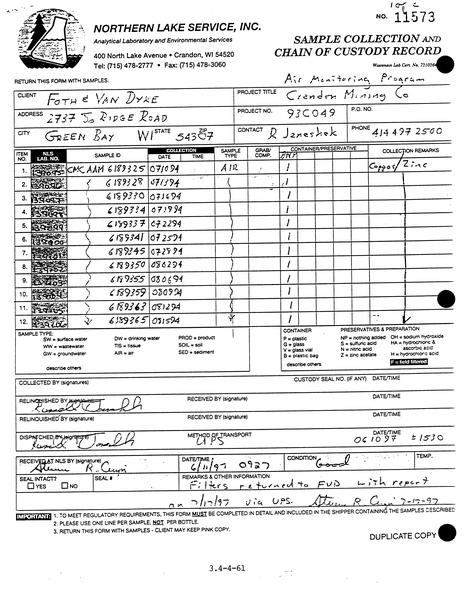 1 of 2
NO. 11573
NORTHERN LAKE SERVICE, INC.
Analytical Laboratory and Environmental Services
400 North Lake Avenue • Crandon, WI 54520
Tel: (715) 478-2777 • Fax: (715) 478-3060
SAMPLE COLLECTION AND
CHAIN OF CUSTODY RECORD
Wisconsin Lab Cert. No.
RETURN THIS FORM WITH SAMPLES.
Air Monitoring Program
CLIENT FOTH & VAN DYKE
PROJECT TITLE Crandon Mining Co
ADDRESS 2737 So RIDGE ROAD
PROJECT NO. 93C049 P.O. NO.
CITY GREEN BAY WI STATE ZIP 54307
CONTACT R Janeshek PHONE 414 497 2500
ITEM NO. NLS LAB. NO. SAMPLE ID COLLECTION DATE TIME SAMPLE TYPE GRAB/COMP. CONTAINER/PRESERVATIVE COLLECTION REMARKS
1. CMC AAM 6189325 071094 AIR 1 Copper/Zinc
2. 6189328 071394 1
3. 6189330 071694 1
4. 6189334 071994 1
5. 6189337 072294 1
6. 6189341 072594 1
7. 6189345 072894 1
8. 6189350 080294 1
9. 6189355 080694 1
10. 6189359 080994 1
11. 6189363 081294 1
12. 6189365 081594 1
SAMPLE TYPE:
SW = surface water DW = drinking water PROD = product
WW = wastewater TIS = tissue SOIL = soil
GW = groundwater AIR = air SED = sediment
describe others
CONTAINER
P = plastic
G = glass
V = glass vial
B = plastic bag
describe others
PRESERVATIVES & PREPARATION
NP = nothing added OH = sodium hydroxide
S = sulfuric acid HA = hydrochloric & ascorbic acid
N = nitric acid
Z = zinc acetate H = hydrochloric acid
F = field filtered
COLLECTED BY (signatures) CUSTODY SEAL NO. (IF ANY) DATE/TIME
RELINQUISHED BY (signature) RECEIVED BY (signature) DATE/TIME
RELINQUISHED BY (signature) RECEIVED BY (signature) DATE/TIME
DISPATCHED BY (signature) METHOD OF TRANSPORT UPS DATE/TIME 061097 1530
RECEIVED AT NLS BY (signature) DATE/TIME 6/11/97 0927 CONDITION Good TEMP.
SEAL INTACT? YES NO SEAL # REMARKS & OTHER INFORMATION
Filters returned to FVD with report
on 7/17/97 via UPS. 7-17-97
IMPORTANT: 1. TO MEET REGULATORY REQUIREMENTS, THIS FORM MUST BE COMPLETED IN DETAIL AND INCLUDED IN THE SHIPPER CONTAINING THE SAMPLES DESCRIBED
2. PLEASE USE ONE LINE PER SAMPLE, NOT PER BOTTLE.
3. RETURN THIS FORM WITH SAMPLES - CLIENT MAY KEEP PINK COPY.
DUPLICATE COPY
3.4-4-61